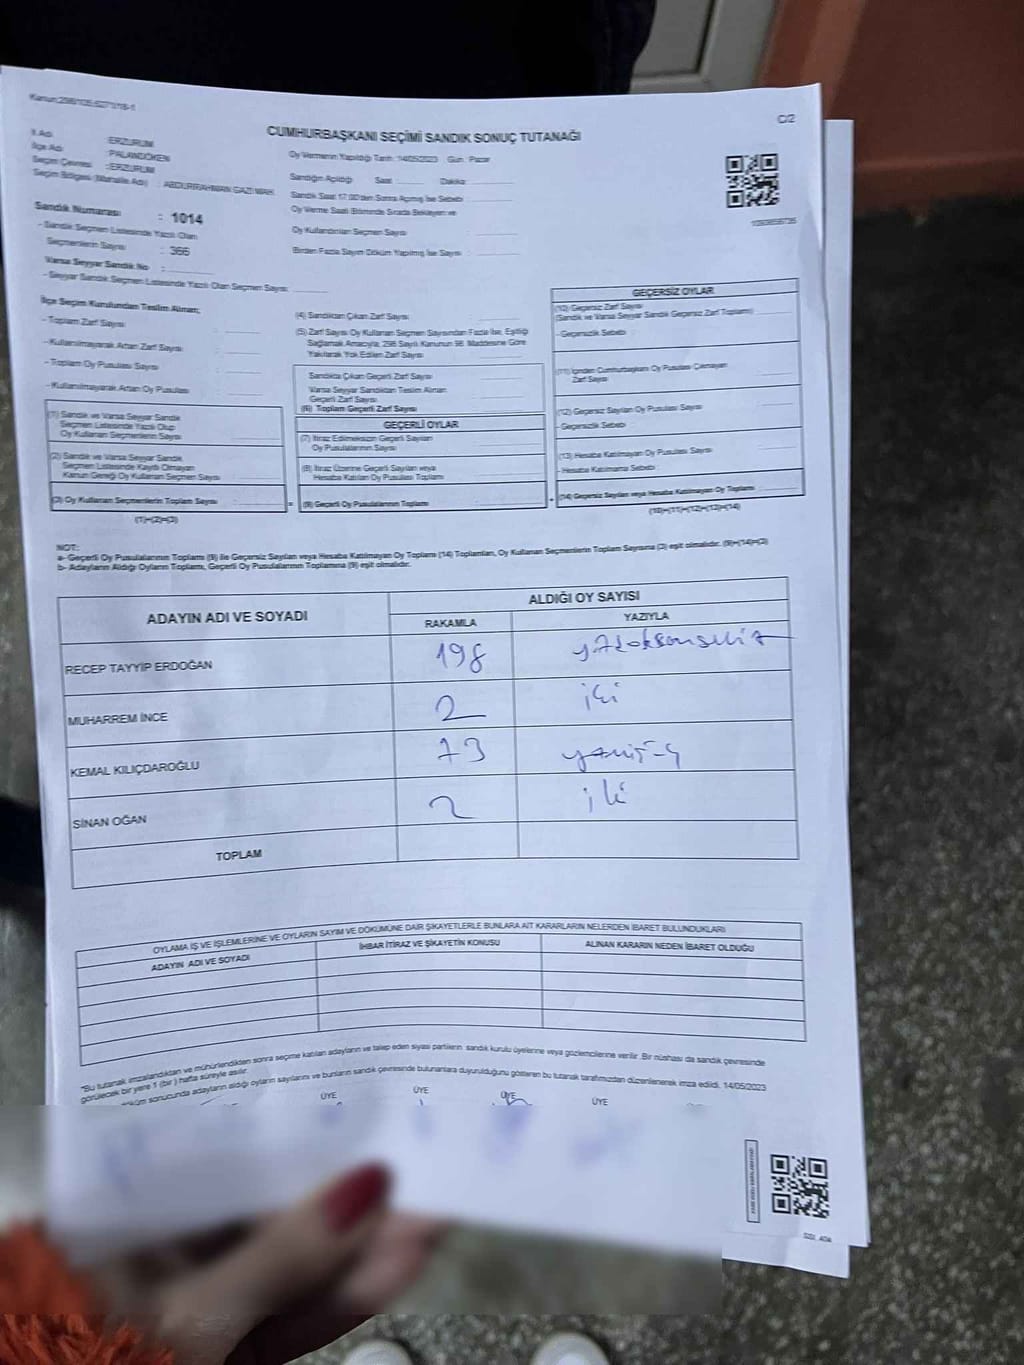 Kanun:298/105;6271/18-1
C/2
CUMHURBAŞKANI SEÇİMİ SANDIK SONUÇ TUTANAĞI
İl Adı : ERZURUM
İlçe Adı : PALANDÖKEN
Seçim Çevresi : ERZURUM
Seçim Bölgesi (Mahalle Adı) : ABDURRAHMAN GAZİ MAH.
Sandık Numarası : 1014
- Sandık Seçmen Listesinde Yazılı Olan
Seçmenlerin Sayısı : 366
Varsa Seyyar Sandık No :
- Seyyar Sandık Seçmen Listesinde Yazılı Olan Seçmen Sayısı:
Oy Vermenin Yapıldığı Tarih: 14/05/2023 Gün: Pazar
Sandığın Açıldığı Saat Dakika
Sandık Saat 17:00'den Sonra Açılmış İse Sebebi
Oy Verme Saati Bitiminde Sırada Bekleyen ve
Oy Kullandırılan Seçmen Sayısı
Birden Fazla Sayım Döküm Yapılmış İse Sayısı
İlçe Seçim Kurulundan Teslim Alınan;
- Toplam Zarf Sayısı :
- Kullanılmayarak Artan Zarf Sayısı :
- Toplam Oy Pusulası Sayısı :
- Kullanılmayarak Artan Oy Pusulası :
(1) Sandık ve Varsa Seyyar Sandık
Seçmen Listesinde Yazılı Olup
Oy Kullanan Seçmenlerin Sayısı
(2) Sandık ve Varsa Seyyar Sandık
Seçmen Listesinde Kayıtlı Olmayan
Kanun Gereği Oy Kullanan Seçmen Sayısı
(3) Oy Kullanan Seçmenlerin Toplam Sayısı
(1)+(2)=(3)
(4) Sandıktan Çıkan Zarf Sayısı
(5) Zarf Sayısı Oy Kullanan Seçmen Sayısından Fazla İse, Eşitliği
Sağlamak Amacıyla; 298 Sayılı Kanunun 98. Maddesine Göre
Yakılarak Yok Edilen Zarf Sayısı
Sandıkta Çıkan Geçerli Zarf Sayısı
Varsa Seyyar Sandıktan Teslim Alınan
Geçerli Zarf Sayısı
(6) Toplam Geçerli Zarf Sayısı
GEÇERLİ OYLAR
(7) İtiraz Edilmeksizin Geçerli Sayılan
Oy Pusulalarının Sayısı
(8) İtiraz Üzerine Geçerli Sayılan veya
Hesaba Katılan Oy Pusulası Toplamı
(9) Geçerli Oy Pusulalarının Toplamı
GEÇERSİZ OYLAR
(10) Geçersiz Zarf Sayısı
(Sandık ve Varsa Seyyar Sandık Geçersiz Zarf Toplamı)
- Geçersizlik Sebebi
(11) İçinden Cumhurbaşkanı Oy Pusulası Çıkmayan
Zarf Sayısı
(12) Geçersiz Sayılan Oy Pusulası Sayısı
- Geçersizlik Sebebi
(13) Hesaba Katılmayan Oy Pusulası Sayısı
- Hesaba Katılmama Sebebi
(14) Geçersiz Sayılan veya Hesaba Katılmayan Oy Toplamı
(10)+(11)+(12)+(13)=(14)
NOT:
a- Geçerli Oy Pusulalarının Toplamı (9) ile Geçersiz Sayılan veya Hesaba Katılmayan Oy Toplamı (14) Toplamları, Oy Kullanan Seçmenlerin Toplam Sayısına (3) eşit olmalıdır. (9)+(14)=(3)
b- Adayların Aldığı Oyların Toplamı, Geçerli Oy Pusulalarının Toplamına (9) eşit olmalıdır.
ADAYIN ADI VE SOYADI
ALDIĞI OY SAYISI
RAKAMLA YAZIYLA
RECEP TAYYİP ERDOĞAN 198 yüzdoksansekiz
MUHARREM İNCE 2 iki
KEMAL KILIÇDAROĞLU 73 yetmişüç
SİNAN OĞAN 2 iki
TOPLAM
OYLAMA İŞ VE İŞLEMLERİNE VE OYLARIN SAYIM VE DÖKÜMÜNE DAİR ŞİKAYETLERLE BUNLARA AİT KARARLARIN NELERDEN İBARET BULUNDUKLARI
ADAYIN ADI VE SOYADI İHBAR İTİRAZ VE ŞİKAYETİN KONUSU ALINAN KARARIN NEDEN İBARET OLDUĞU
"Bu tutanak imzalandıktan ve mühürlendikten sonra seçime katılan adayların ve talep eden siyasi partilerin sandık kurulu üyelerine veya gözlemcilerine verilir. Bir nüshası da sandık çevresinde
görülecek bir yere 1 (bir) hafta süreyle asılır.
döküm sonucunda adayların aldığı oyların sayılarını ve bunların sandık çevresinde bulunanlara duyurulduğunu gösteren bu tutanak tarafımızdan düzenlenerek imza edildi. 14/05/2023
ÜYE ÜYE ÜYE ÜYE